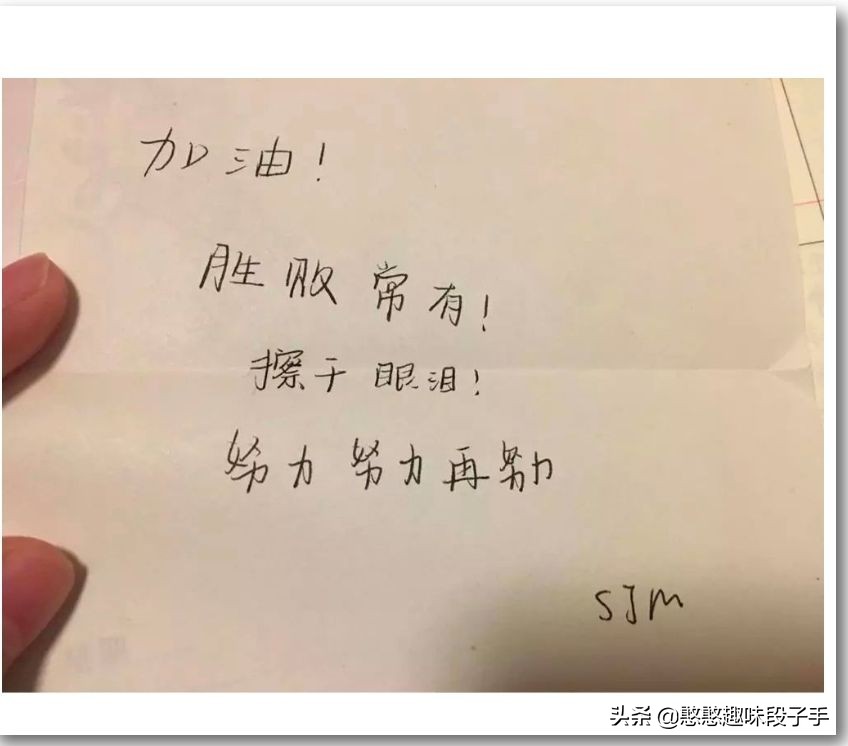 加油！
胜败常有！
擦干眼泪！
努力努力再努力
SJM
头条 @憨憨趣味段子手